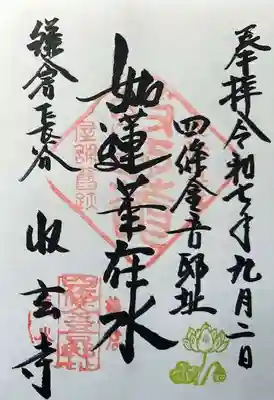 奉拝 令和七年九月二日
四條金吾邸址
如蓮華在水
鎌倉長谷
收玄寺